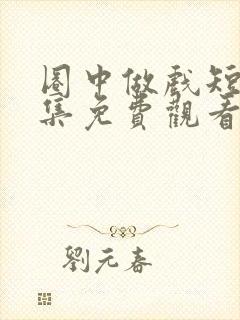 圈中做戲短
集免費觀看
劉元春